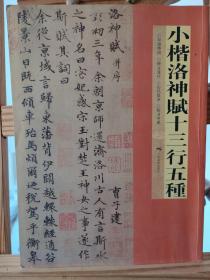 小楷洛神賦十三行五種
洛神賦 并序
曹子建
黃初三年余朝京師還濟洛川古人有言斯水
之神名曰宓妃感宋玉對楚王神女之事遂作
斯賦其詞曰
余從京域言歸東藩背伊闕越轘轅經通谷
陵景山日既西傾車殆馬煩爾乃稅駕乎蘅皋